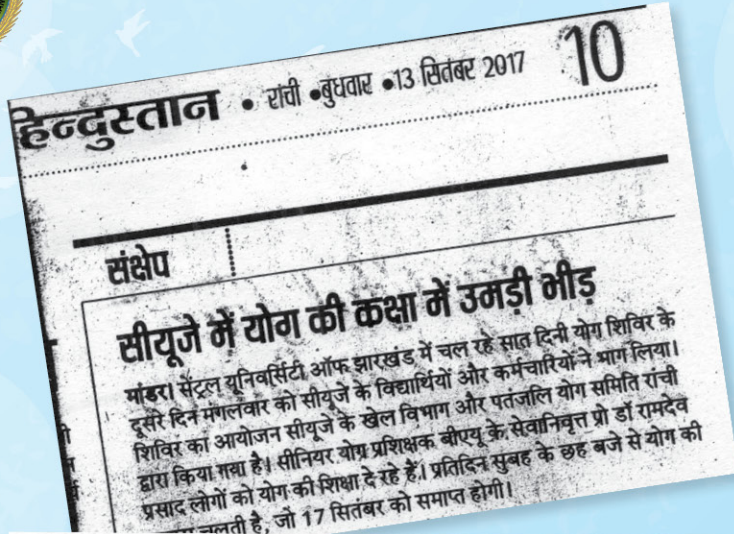 हिन्दुस्तान • रांची •बुधवार •13 सितंबर 2017 10
संक्षेप
सीयूजे में योग की कक्षा में उमड़ी भीड़
मांडर। सेंट्रल यूनिवर्सिटी ऑफ झारखंड में चल रहे सात दिनी योग शिविर के
दूसरे दिन मंगलवार को सीयूजे के विद्यार्थियों और कर्मचारियों ने भाग लिया।
शिविर का आयोजन सीयूजे के खेल विभाग और पतंजलि योग समिति रांची
द्वारा किया गया है। सीनियर योग प्रशिक्षक बीएयू के सेवानिवृत्त प्रो डॉ रामदेव
प्रसाद लोगों को योग की शिक्षा दे रहे हैं। प्रतिदिन सुबह के छह बजे से योग की
चलती है, जो 17 सितंबर को समाप्त होगी।